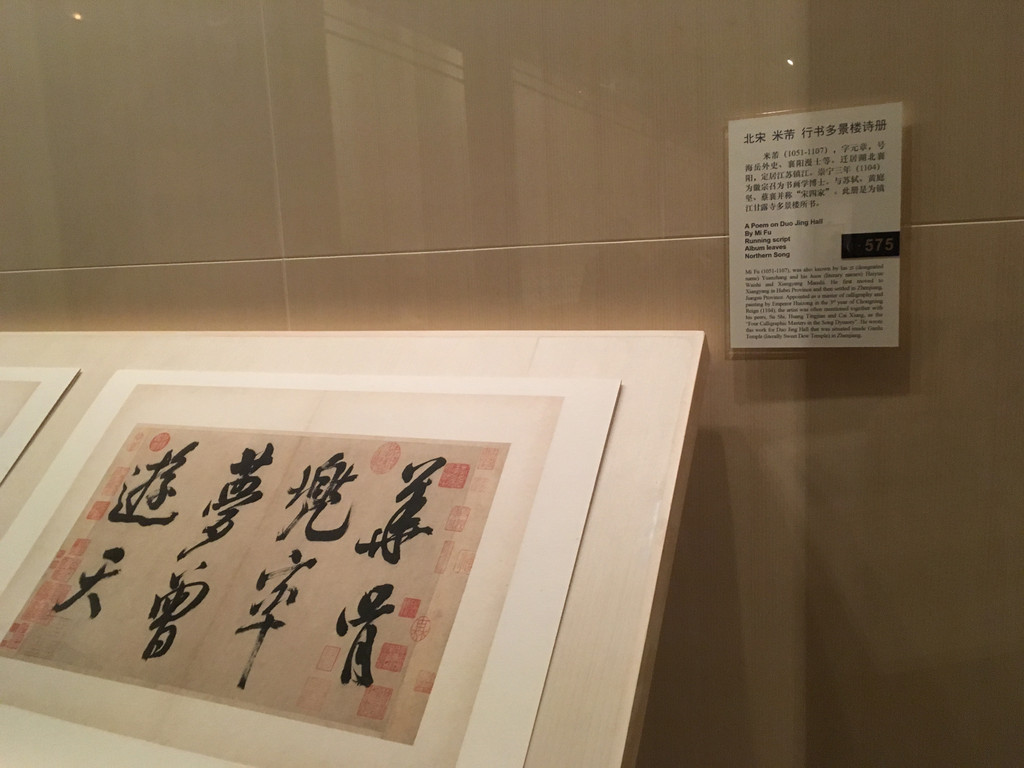 華胥
兜率
夢曾
遊天
北宋 米芾 行书多景楼诗册
米芾（1051-1107），字元章，号
海岳外史、襄阳漫士等。迁居湖北襄
阳，定居江苏镇江。崇宁三年（1104）
为徽宗召为书画学博士。与苏轼、黄庭
坚、蔡襄并称“宋四家”。此册是为镇
江甘露寺多景楼所书。
A Poem on Duo Jing Hall
By Mi Fu
Running script
Album leaves
Northern Song
575
Mi Fu (1051-1107), was also known by his zi (designated
name) Yuanzhang and his haos (literary names) Haiyue
Waishi and Xiangyang Manshi. He first moved to
Xiangyang in Hubei Province and then settled in Zhenjiang,
Jiangsu Province. Appointed as a master of calligraphy and
painting by Emperor Huizong in the 3rd year of Chongning
Reign (1104), the artist was often mentioned together with
his peers, Su Shi, Huang Tingjian and Cai Xiang, as the
"Four Calligraphic Masters in the Song Dynasty". He wrote
this work for Duo Jing Hall that was situated inside Ganlu
Temple (literally Sweet Dew Temple) in Zhenjiang.